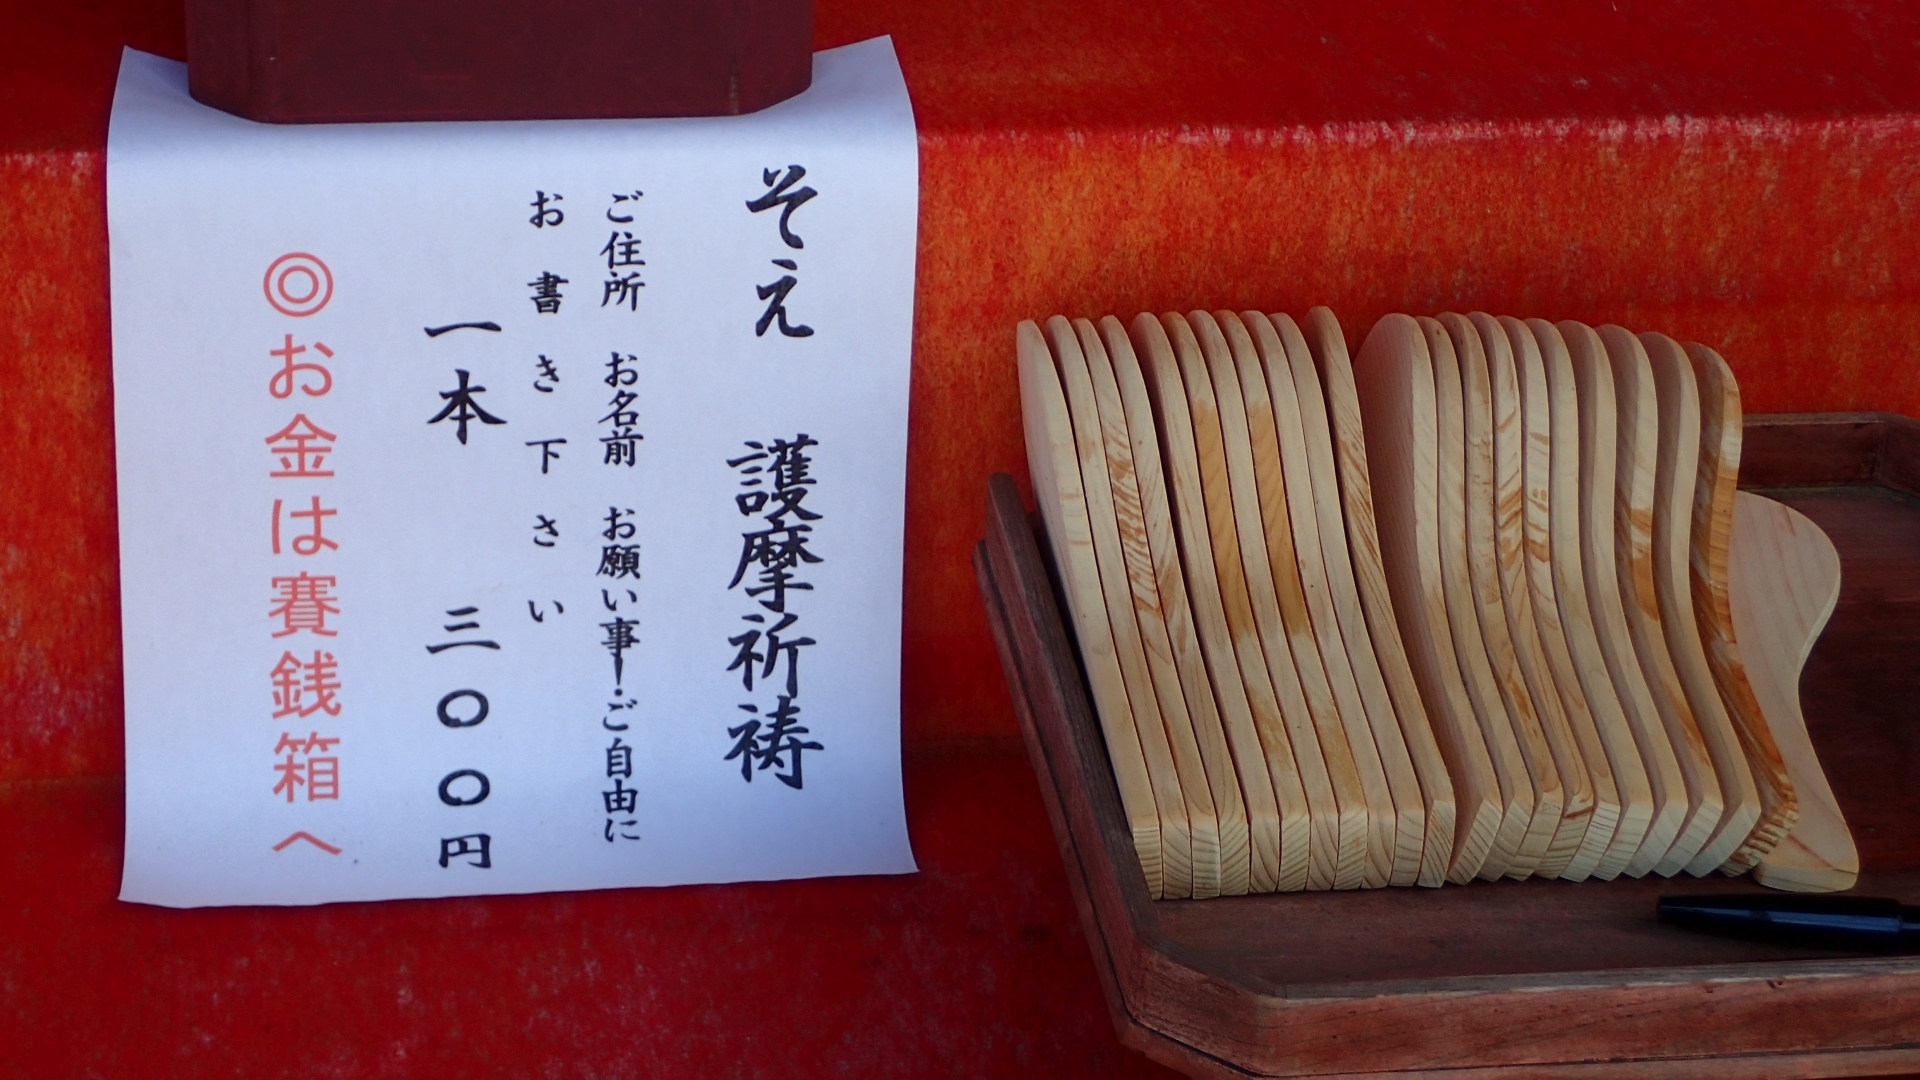 そえ 護摩祈祷
ご住所 お名前 お願い事!・ご自由に
お書き下さい
一本 三〇〇円
◎お金は賽銭箱へ